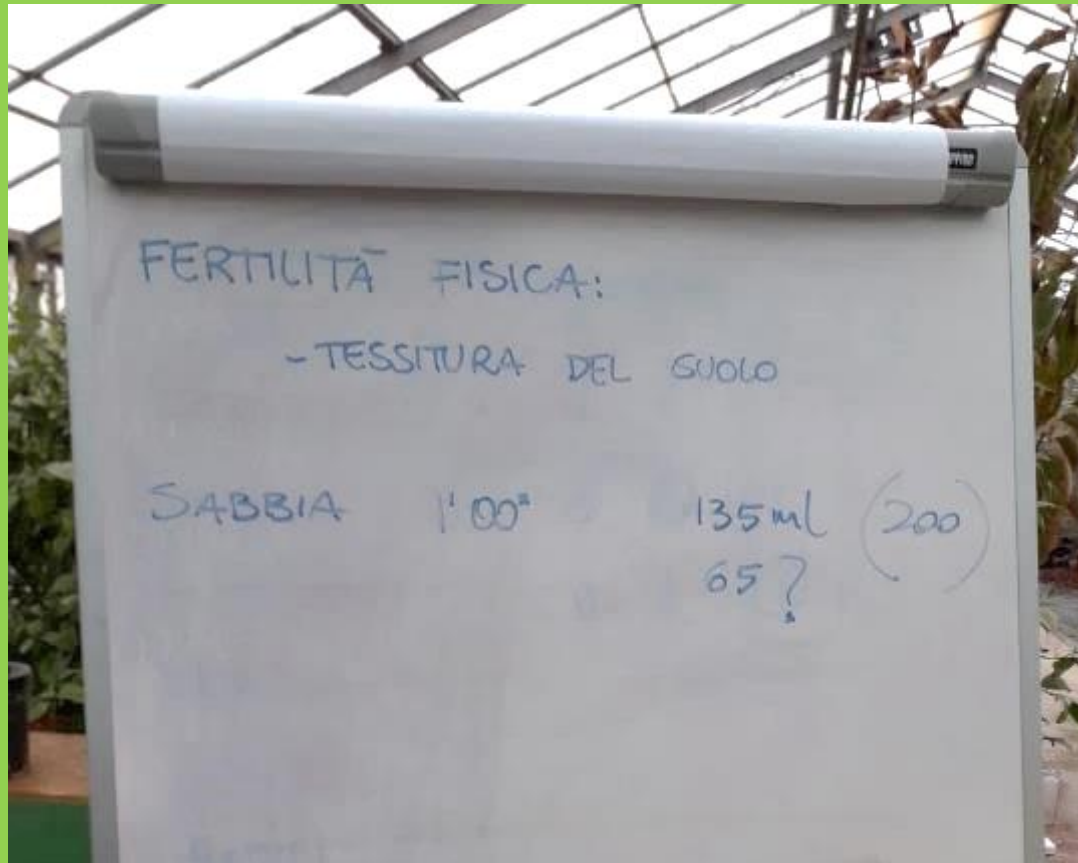 FERTILITÀ FISICA:
- TESSITURA DEL SUOLO
SABBIA 1'00" 135 ml (200)
65?